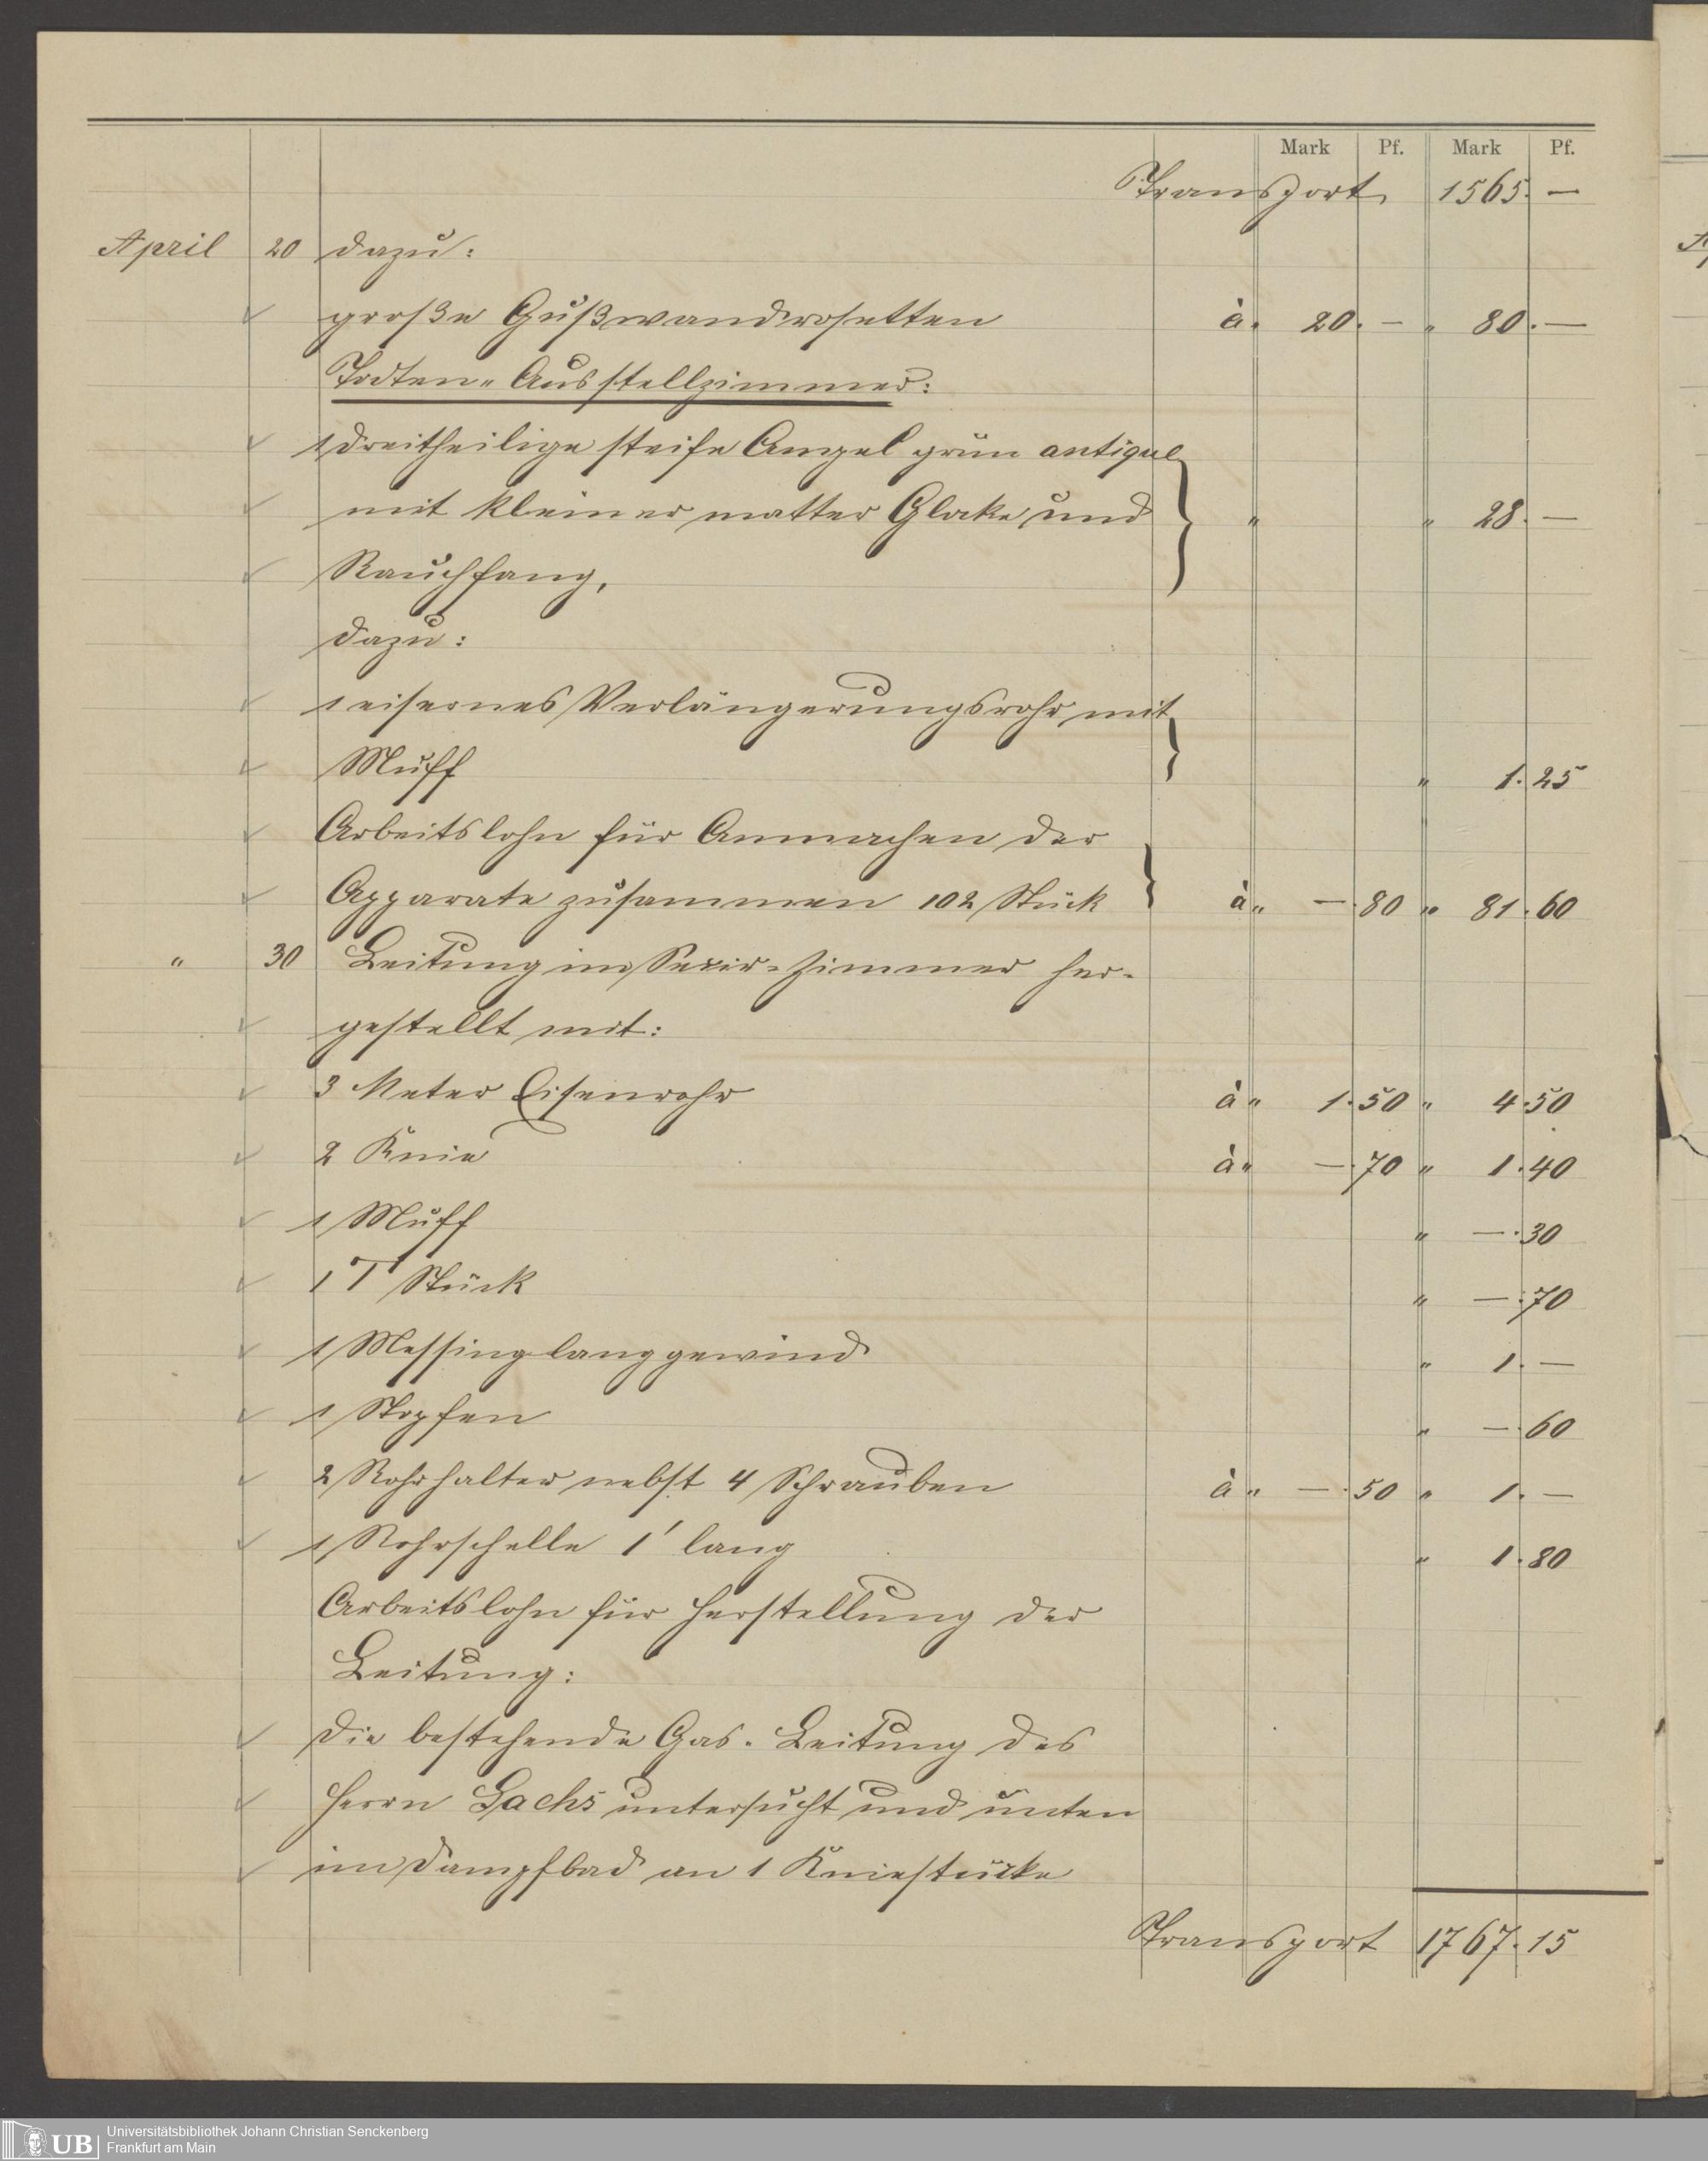 Mark Pf. Mark Pf.
Transport 1565. —
April 20 dazu:
große Gußwandrosetten à „ 20. — „ 80. —
Todten-Ausstellzimmer:
1 dreitheilige steife Ampel grün antique
mit kleiner matter Glocke und „ „ 28. —
Rauchfang,
dazu:
1 eisernes Verlängerungsrohr mit
Muff „ 1. 25
Arbeitslohn für Anmachen der
Apparate zusammen 102 Stück à „ —. 80 „ 81. 60
„ 30 Leitung im Secir-Zimmer her-
gestellt mit:
3 Meter Eisenrohr à „ 1. 50 „ 4. 50
2 Knie à „ —. 70 „ 1. 40
1 Muff „ —. 30
1 T Stück „ —. 70
1 Messinglanggewind „ 1. —
1 Stopfen „ —. 60
2 Rohrhalter nebst 4 Schrauben à „ —. 50 „ 1. —
1 Rohrschelle 1' lang „ 1. 80
Arbeitslohn für Herstellung der
Leitung:
Die bestehende Gas-Leitung des
Herrn Sachs untersucht und unten
im Dampfbad an 1 Kniestücke
Transport 1767. 15
UB Universitätsbibliothek Johann Christian Senckenberg
Frankfurt am Main